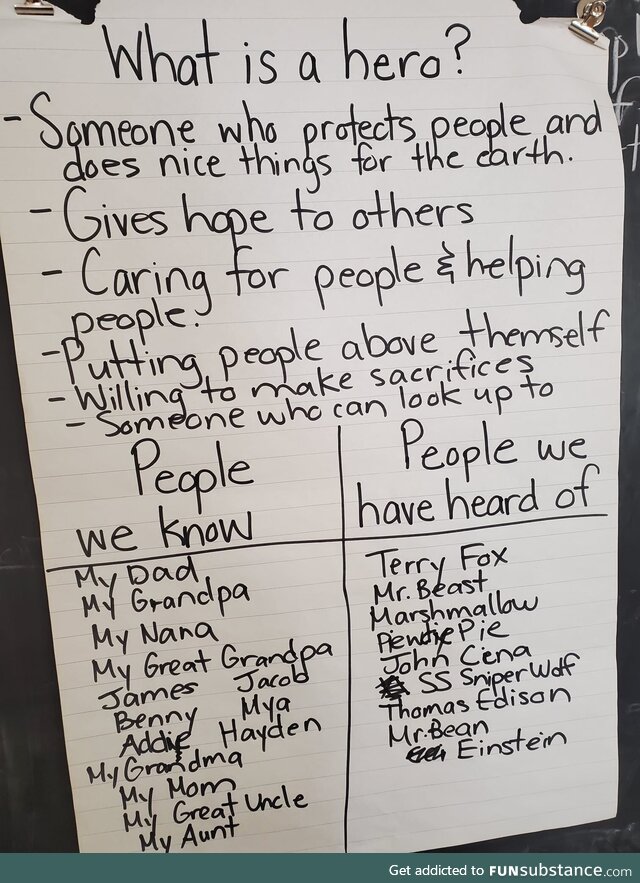 What is a hero?
- Someone who protects people and
does nice things for the earth.
- Gives hope to others
- Caring for people & helping
people.
- Putting people above themself
- Willing to make sacrifices
- Someone who can look up to
People
we know
My Dad
My Grandpa
My Nana
My Great Grandpa
James Jacob
Benny Mya
Addie Hayden
My Grandma
My Mom
My Great Uncle
My Aunt
People we
have heard of
Terry Fox
Mr. Beast
Marshmallow
PewdiePie
John Cena
SS SniperWolf
Thomas Edison
Mr. Bean
Einstein
Get addicted to FUNsubstance.com